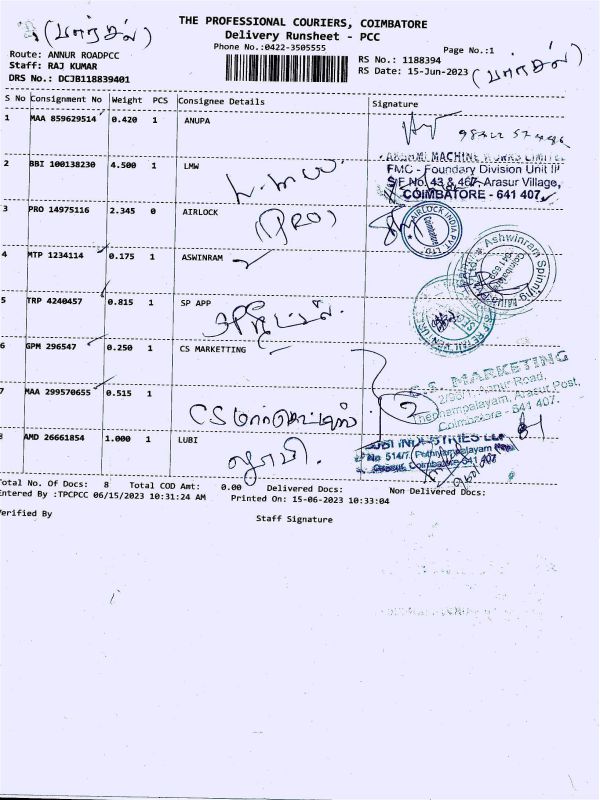 (பார்சல்)
THE PROFESSIONAL COURIERS, COIMBATORE
Delivery Runsheet - PCC
Phone No.:0422-3505555
Page No.:1
Route: ANNUR ROADPCC
Staff: RAJ KUMAR
DRS No.: DCJB118839401
RS No.: 1188394
RS Date: 15-Jun-2023
(பார்சல்)
S No Consignment No Weight PCS Consignee Details Signature
1 MAA 859629514 0.420 1 ANUPA
2 BBI 100138230 4.500 1 LMW
MACHINE WORKS LIMITED
FMC - Foundry Division Unit II
S.F. No. 43 & 467, Arasur Village,
COIMBATORE - 641 407.
3 PRO 14975116 2.345 0 AIRLOCK
(PRO)
AIRLOCK INDIA PVT LTD
Coimbatore
4 MTP 1234114 0.175 1 ASWINRAM
Ashwinram Spinning Mills
5 TRP 4240457 0.815 1 SP APP
6 GPM 296547 0.250 1 CS MARKETTING
C.S. MARKETING
Annur Road,
Arasur Post,
Coimbatore - 641 407.
7 MAA 299570655 0.515 1
CS மார்கெட்டிங்
2
8 AMD 26661854 1.000 1 LUBI
லூபி.
LUBI INDUSTRIES LLP
No 514/7, Pothiyampalayam
Coimbatore 641 407
Total No. Of Docs: 8 Total COD Amt: 0.00 Delivered Docs: Non Delivered Docs:
Entered By :TPCPCC 06/15/2023 10:31:24 AM Printed On: 15-06-2023 10:33:04
Verified By Staff Signature